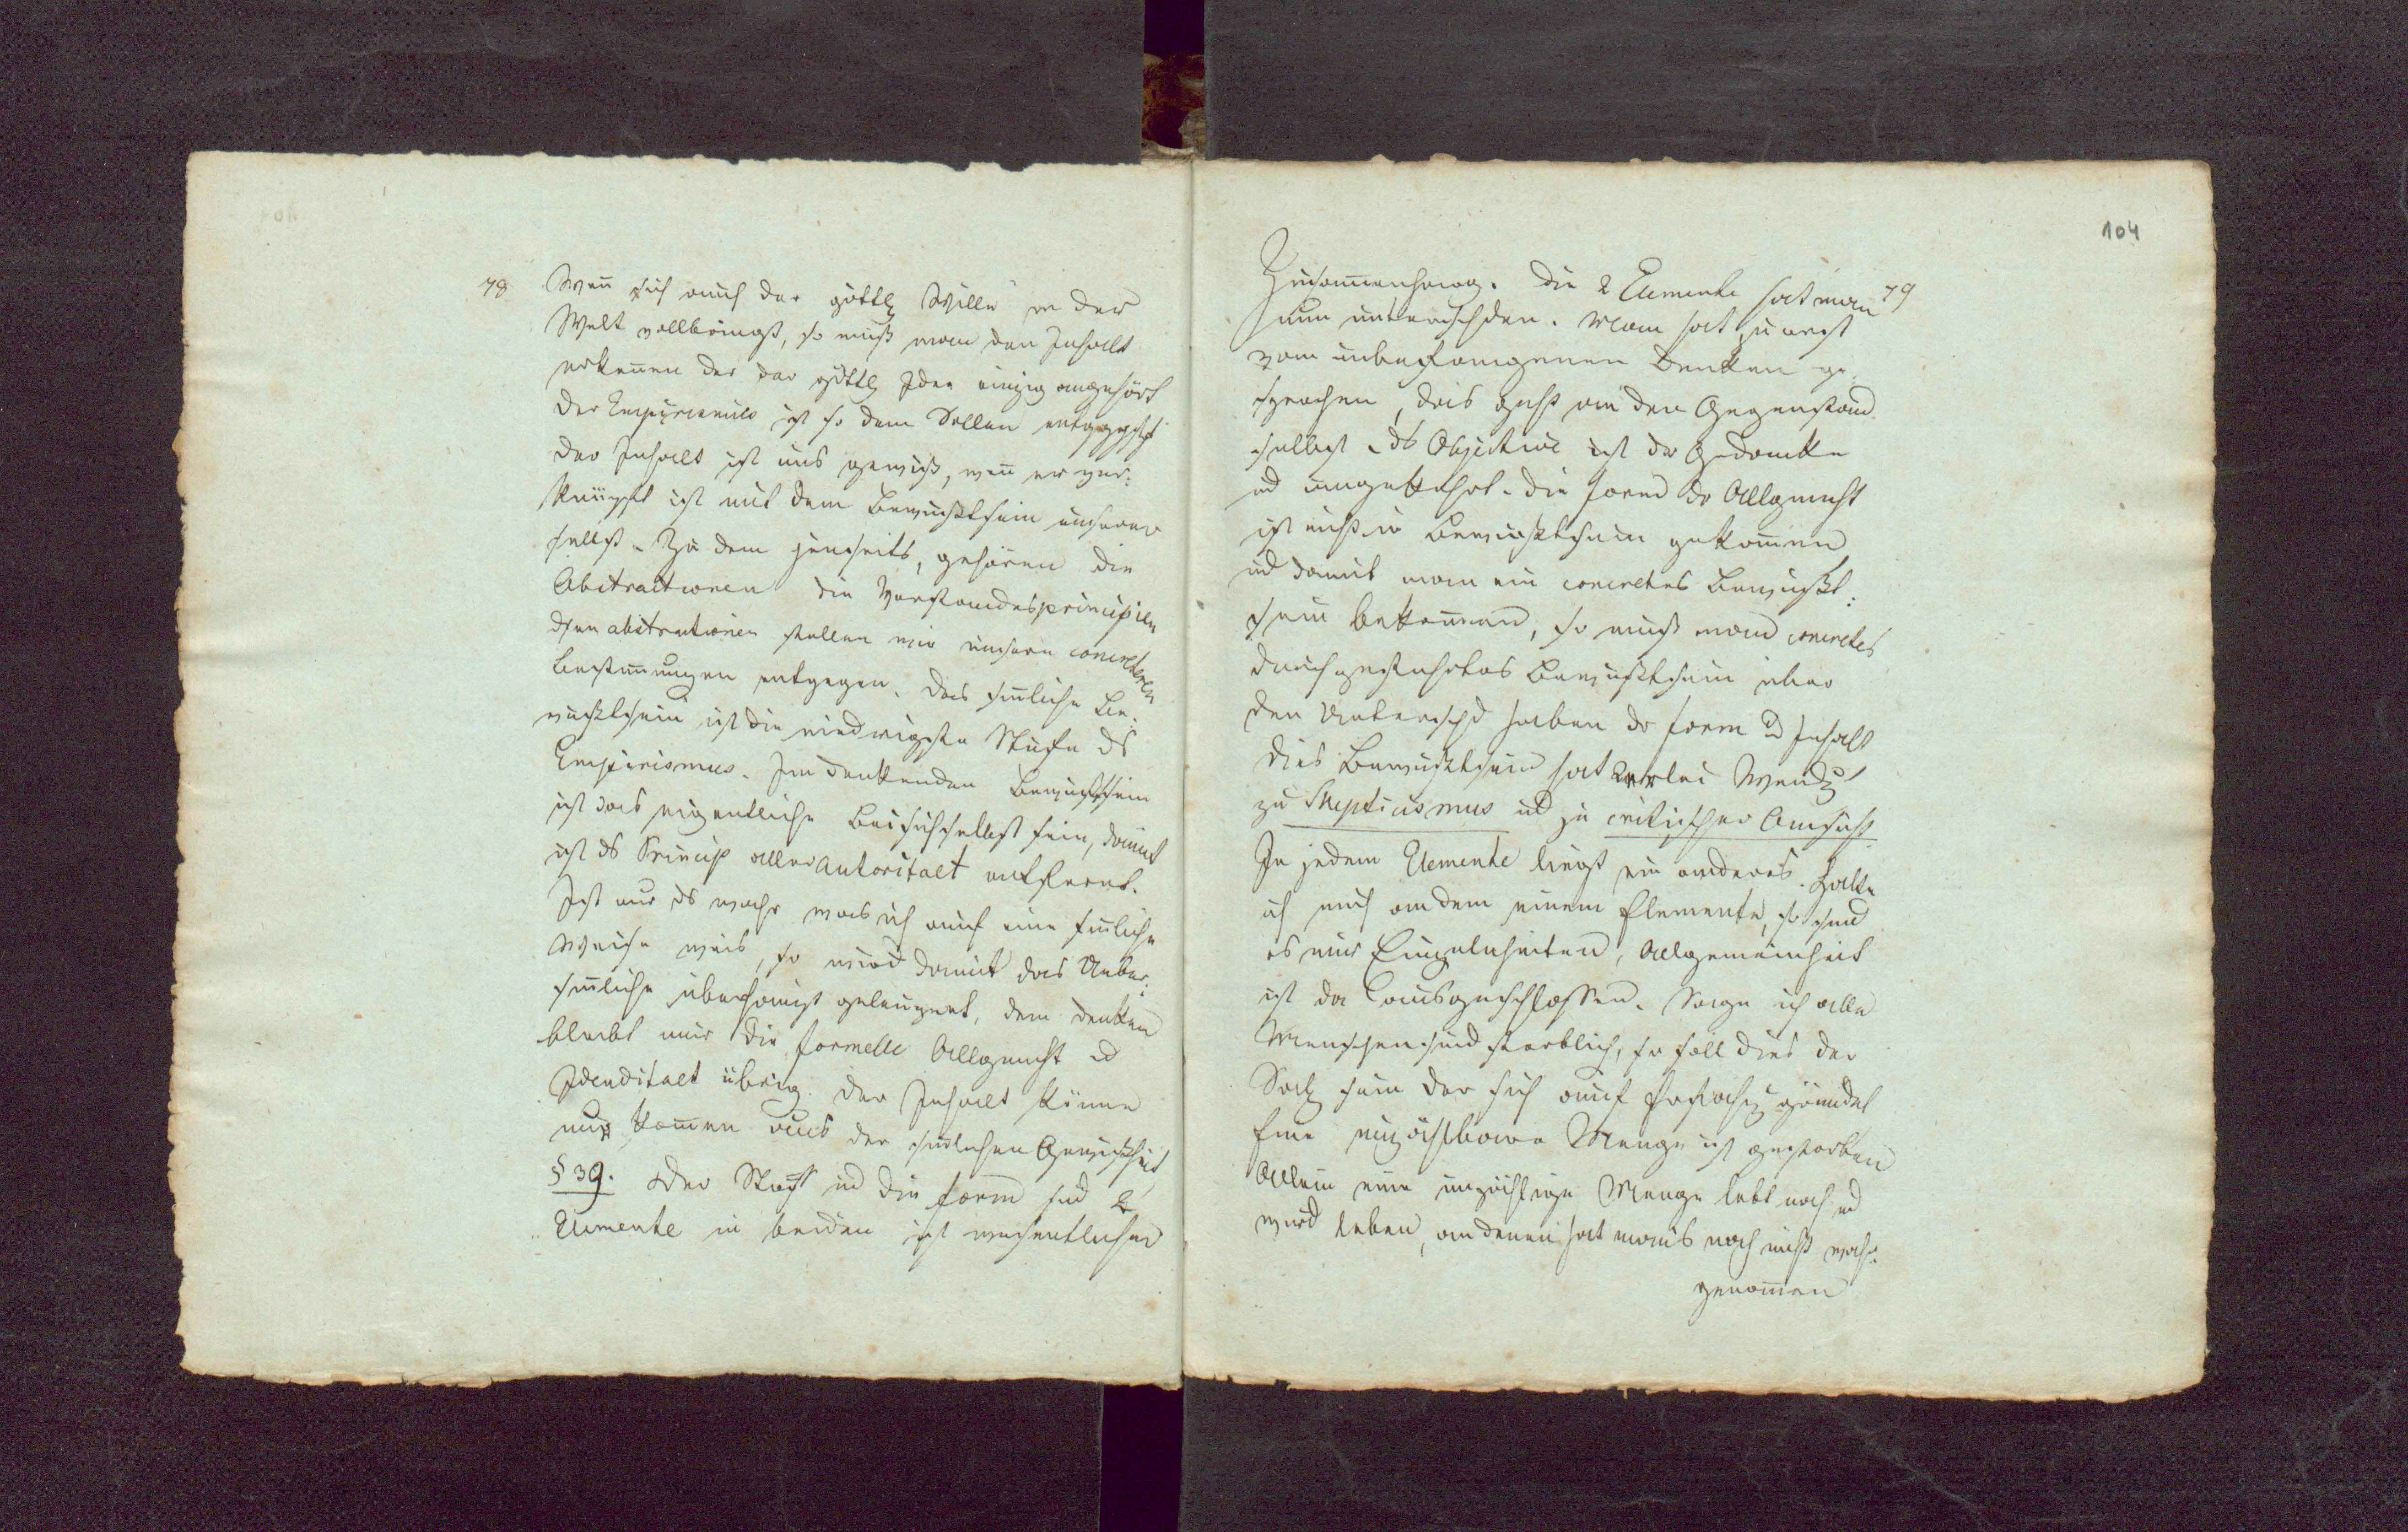 78
Wen̄ sich auch der göttl Wille in der
Welt vollbringt, so muß man den Inhalt
erkennen der der göttl Idee einzig angehört
Der Empirismus ist so dem Sollen entggsetzt
Der Inhalt ist uns gewiß, wen̄ er ver:
knüpft ist mit dem Bewußtsein unserer
selbst. Zu dem jenseits, gehören die
Abstractionen die Verstandesprincipien
dsen abstractionen stellen wir unsere concreteren
Bestim̄ungen entgegen. Das sin̄liche Be:
wußtsein ist die niedrigste Stufe ds
Empirismus. Im denkenden Bewußtsein
ist das eigentliche Beisichselbst sein, damit
ist ds Princip aller Autoritaet entfernt.
Ist nur ds wahr was ich auf eine sin̄liche
Weise weis, so wird damit das Ueber:
sin̄liche überhaupt geleugnet, dem denken
bleibt nur die formelle Allgemht ud
Idenditaet übrig. Der Inhalt kön̄e
nur kom̄en aus der sin̄lichen Gewißheit
§ 39. Der Stoff ud die Form sind 2
Elemente in beiden ist wesentlicher
104
79
Zusam̄enhang. Die 2 Elemente hat man
nun unterschden. Man hat zuerst
vom unbefangenen Denken ge:
sprochen, das geht an den Gegenstand
selbst. ds Objective ist der Gedanke
ud umgekehrt. Die Form dr Allgemht
ist nicht in Bewußtsein gekom̄en
ud damit man ein concretes Bewußt:
sein bekom̄en, so muß man concretes
durchgeführtes Bewußtsein über
den Unterschd haben dr Form ud Inhalt
Dies Bewußtsein hat 2erlei Wendg
zu Skepticismus ud zu critischer Ansicht.
In jedem Elemente liegt ein anderes. Halte
ich mich an dem einem Elemente, so sind
es nur Einzelnheiten, Allgemeinheit
ist da ausgeschlossen. Sage ich alle
Menschen sind sterblich, so soll dies der
Satz sein der sich auf Erfahrg gründet
Eine unzählbare Menge ist gestorben
Allein eine unzählige Menge lebt noch ud
wird leben, an denen hat mans noch nicht wahr:
genom̄en